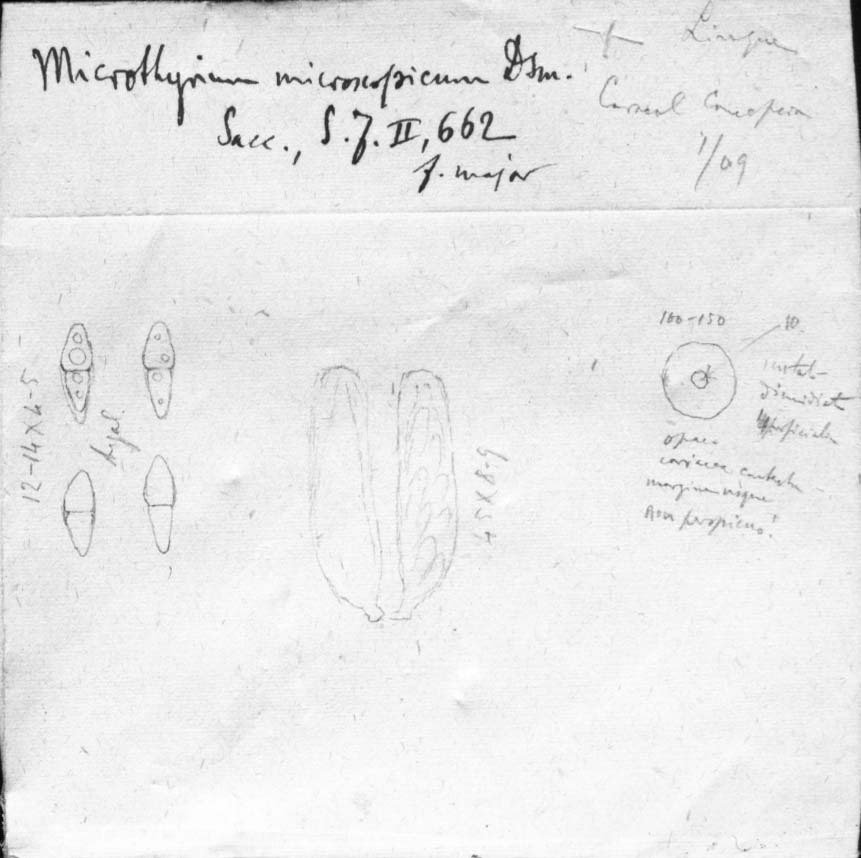 Microthyrium microscopicum Dsm.
Sacc., S. F. II, 662
f. major
Lingue
Concepcion
1/09
12-14X4-5
hyal.
45X8-9
100-150
10
dimidiat
superficialia
opaca
coriacea contextu
margine usque
non perspicuo.